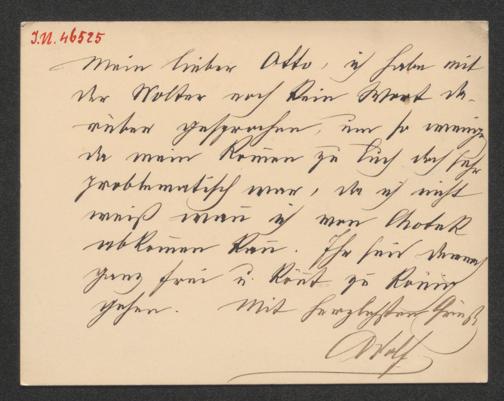 I.N. 46525
Mein lieber Otto, ich habe mit
der Wolter noch kein Wort da-
rüber gesprochen, um so weniger
da mein Kom̄en zu Euch doch sehr
problematisch war, da ich nicht
weiß wan̄ ich von Chotek
abkom̄en kan̄. Ihr seid demnach
ganz frei u. kön̄t zu König
gehen. Mit herzlichsten Grüßen
Adolf